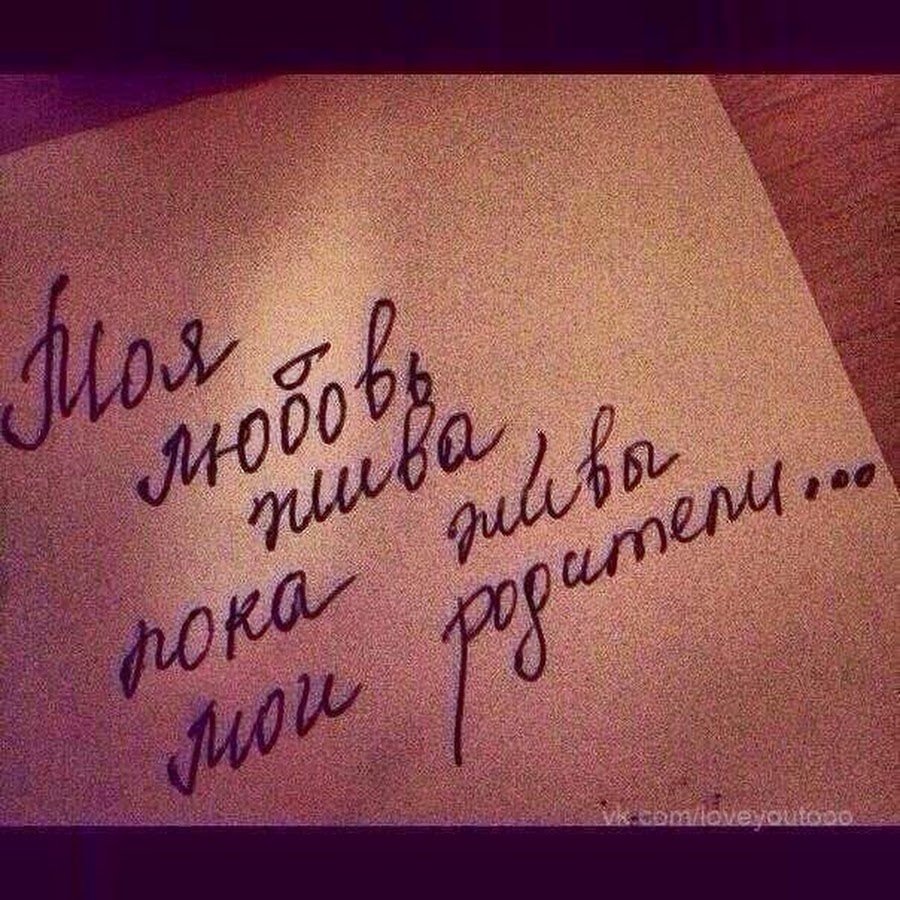 Моя
любовь
жива
пока живы
мои родители...
vk.com/loveyoutooo